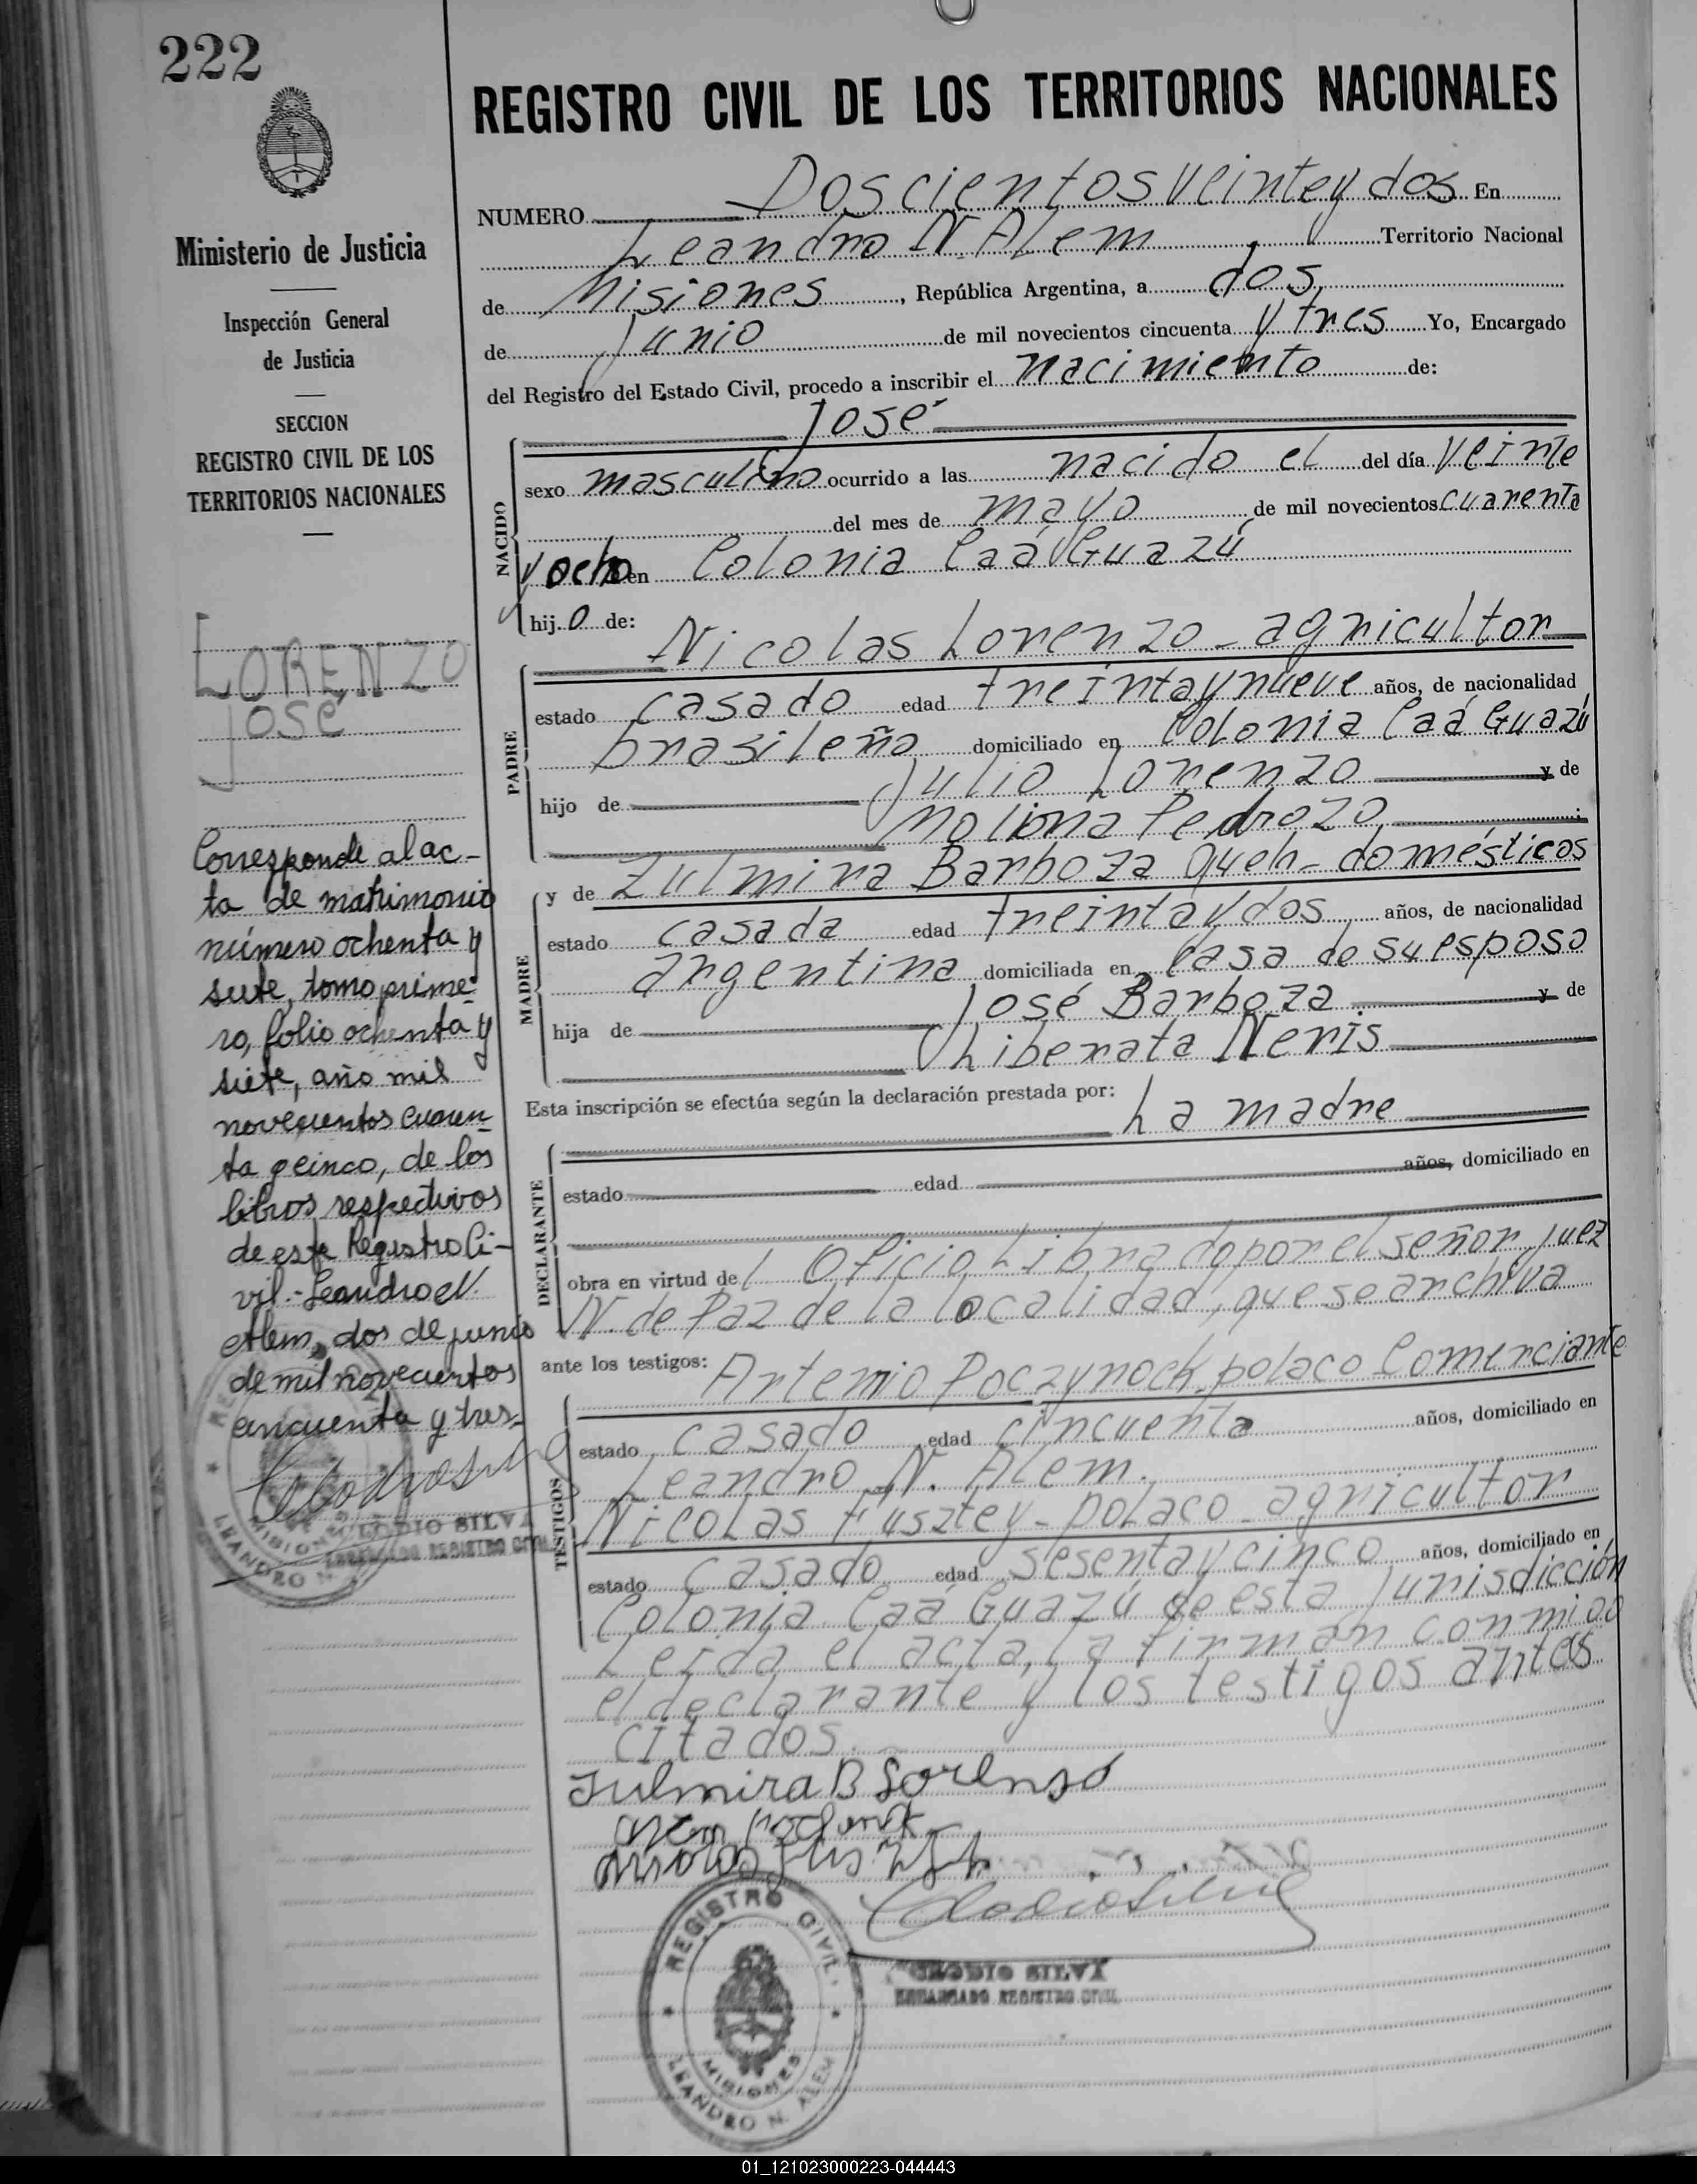 222
Ministerio de Justicia
Inspección General
de Justicia
SECCION
REGISTRO CIVIL DE LOS
TERRITORIOS NACIONALES
LORENZO
José
Corresponde al ac-
ta de matrimonio
número ochenta y
siete, tomo prime-
ro, folio ochenta y
siete, año mil
novecientos cuaren-
ta y cinco, de los
libros respectivos
de este Registro Ci-
vil.- Leandro N.
Alem, dos de junio
de mil novecientos
cincuenta y tres.-
CLODIO SILVA
ENCARGADO REGISTRO CIVIL
MISIONES
LEANDRO N.
REGISTRO CIVIL DE LOS TERRITORIOS NACIONALES
NUMERO Doscientos veinte y dos En
Leandro N. Alem Territorio Nacional
de Misiones, República Argentina, a dos
de Junio de mil novecientos cincuenta y tres Yo, Encargado
del Registro del Estado Civil, procedo a inscribir el nacimiento de:
José
NACIDO
sexo masculino ocurrido a las nacido el del día veinte
del mes de mayo de mil novecientos cuarenta
y ocho en Colonia Caá Guazú
hij.o de:
Nicolas Lorenzo - agricultor
PADRE
estado casado edad treinta y nueve años, de nacionalidad
brasileño domiciliado en Colonia Caá Guazú
hijo de Julio Lorenzo y de
Pedrozo
y de Zulmira Barboza queh- domésticos
MADRE
estado casada edad treinta y dos años, de nacionalidad
argentina domiciliada en Casa de su esposo
hija de José Barboza y de
Liberata Neris
Esta inscripción se efectúa según la declaración prestada por:
La madre
DECLARANTE
estado edad años, domiciliado en
obra en virtud de l Oficio Librado por el señor Juez
N. de Paz de la localidad, que se archiva
ante los testigos:
Artemio Poczynock polaco Comerciante
TESTIGOS
estado casado edad cincuenta años, domiciliado en
Leandro N. Alem.
Nicolas Fusztey - polaco - agricultor
estado casado edad sesenta y cinco años, domiciliado en
Colonia Caá Guazú de esta Jurisdicción
Leida el acta, la firman conmigo
el declarante y los testigos antes
citados.
Julmira B Lorenso
REGISTRO CIVIL
MISIONES
LEANDRO N. ALEM
CLODIO SILVA
ENCARGADO REGISTRO CIVIL
01_121023000223-044443